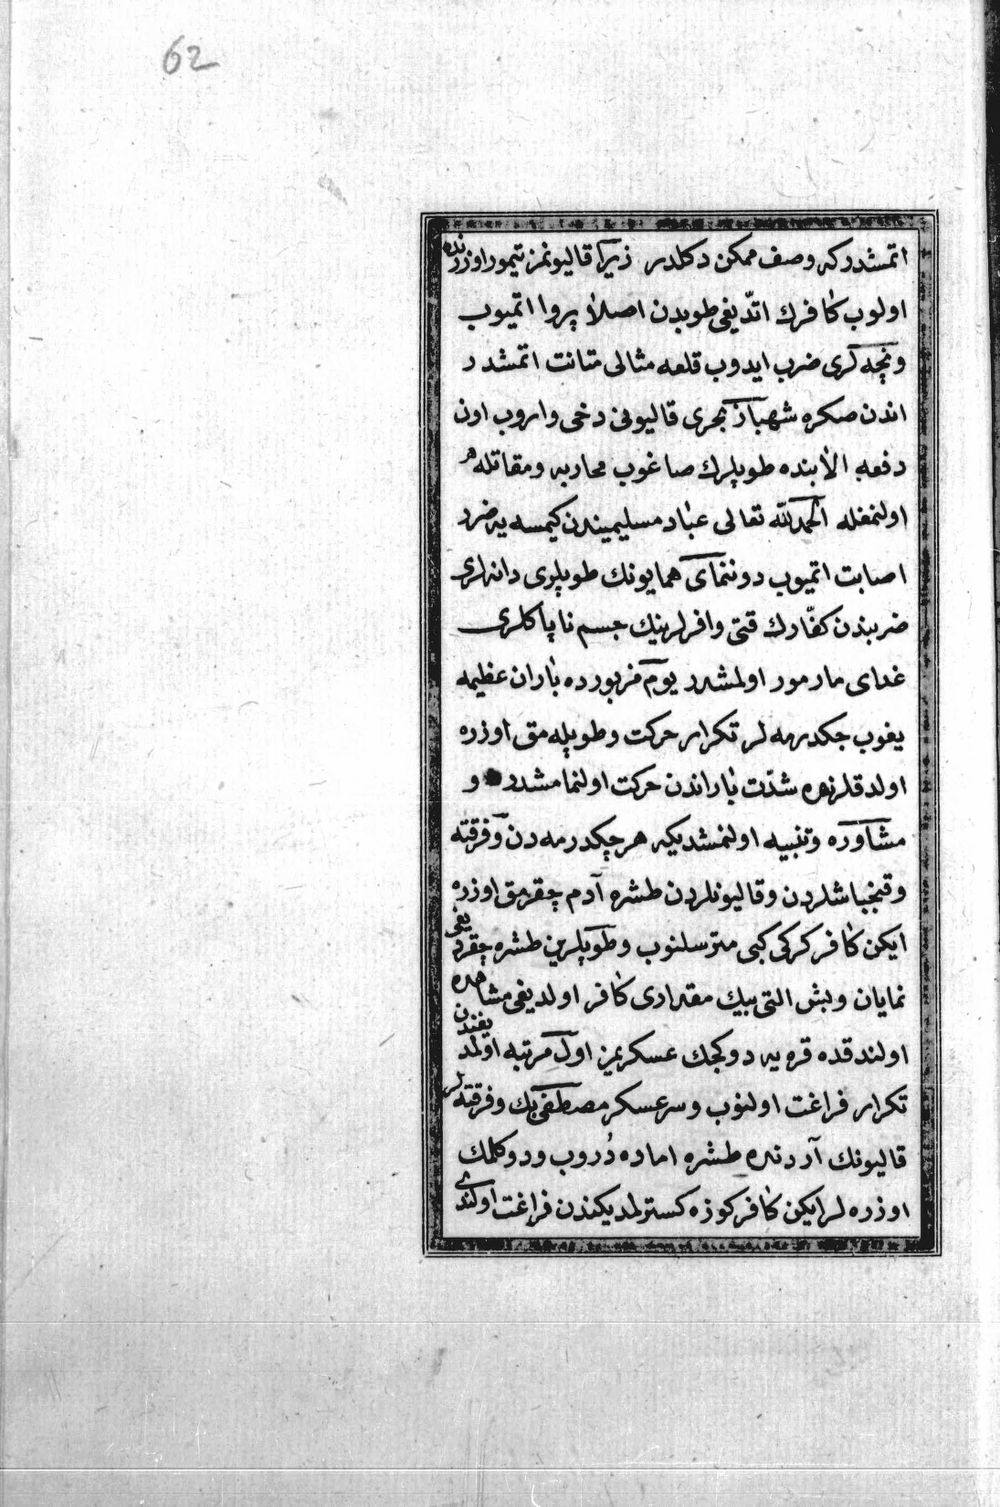 62
اتمشدركه وصف ممكن دكلدر زيرا قاليونمز تيمور اوزرنده
اولوب كافرك اتدّيغى طوبدن اصلا پروا اتميوب
ونچه كرى ضرب ايدوب قلعه مثالى متانت اتمشدر
اندن صكره شهباز بحرى قاليونى دخى واروب اون
دفعه الابنده طوپلرك صاغوب محاربه ومقاتله
اولنمغله الحمدلله تعالى عباد مسليميندن كيمسه يه ضرر
اصابت اتميوب دوننماى همايونك طوپلرى دانهلرى
ضربندن كفّارك قتى وافرلرينك جسم ناپاكلرى
غداى مارمور اولمشدر يوم مزبورده باران عظيمه
يغوب جكدرمه لر تكرار حركت وطوپله مق اوزره
اولدقلرنده شدّت باراندن حركت اولنمامشدر و
مشاوره وتنبيه اولنمشديكه هر چكدرمه دن وفرقته
وقبنجباشلردن وقاليونلردن طشره آدم چقرمق اوزره
ايكن كافر كركى كبى مترسلنوب وطوپلرين طشره چقرديغى
نمايان وبش التى بيك مقدارى كافر اولديغى مشاهده
اولندقده قره يه دوكجك عسكريمز اول مرتبه اولمديغندن
تكرار فراغت اولنوب وسرعسكر مصطفى بك وفرقته لر
قاليونك آردنده طشره اماده دُروب ودوكلمك
اوزره لر ايكن كافر كوزه كسترلمديكندن فراغت اولندى